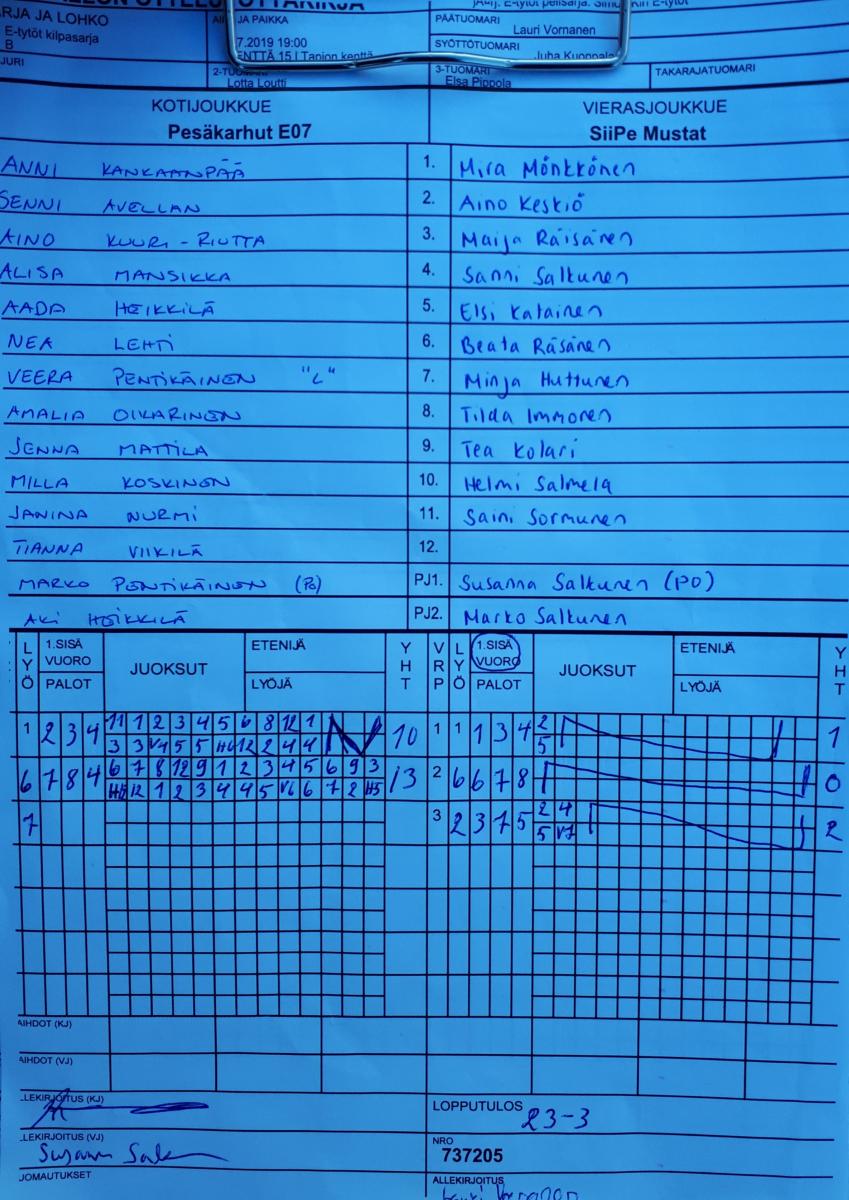 E-tytöt kilpasarja
B
JA PAIKKA
7.2019 19:00
PÄÄTUOMARI
Lauri Vornanen
SYÖTTÖTUOMARI
2-TUOMARI
Lotta Loutti
3-TUOMARI
Elsa Pippola
TAKARAJATUOMARI
KOTIJOUKKUE VIERASJOUKKUE
Pesäkarhut E07 SiiPe Mustat
ANNI KANKAANPÄÄ 1. Mira Mönkkönen
SENNI AVELLAN 2. Aino Keskiö
AINO KUURI-RIUTTA 3. Maija Räisänen
ALISA MANSIKKA 4. Sanni Salkunen
AADA HEIKKILÄ 5. Elsi Katainen
NEA LEHTI 6. Beata Räsänen
VEERA PENTIKÄINEN "L" 7. Minja Huttunen
AMALIA OIKARINEN 8. Tilda Immonen
JENNA MATTILA 9. Tea Kolari
MILLA KOSKINEN 10. Helmi Salmela
JANINA NURMI 11. Saini Sormunen
TIANNA VIIKILÄ 12.
MARKO PENTIKÄINEN (PO) PJ1. Susanna Salkunen (PO)
AKI HEIKKILÄ PJ2. Marko Salkunen
LYÖ 1.SISÄ VUORO PALOT JUOKSUT ETENIJÄ LYÖJÄ YHT VRP LYÖ 1.SISÄ VUORO PALOT JUOKSUT ETENIJÄ LYÖJÄ YHT
1 2 3 4 11 1 2 3 4 5 6 8 12 1 10 1 1 1 3 4 2 1
3 3 V4 5 5 H6 12 2 4 4 5
6 7 8 4 6 7 8 12 9 1 2 3 4 5 6 9 3 13 2 6 6 7 8 0
12 1 2 3 4 4 5 V6 6 7 2 H5
7 3 2 3 7 5 2 4 2
5 V7
AIHDOT (KJ)
AIHDOT (VJ)
LEKIRJOITUS (KJ)
LOPPUTULOS
23-3
LEKIRJOITUS (VJ)
NRO
737205
JOMAUTUKSET
ALLEKIRJOITUS